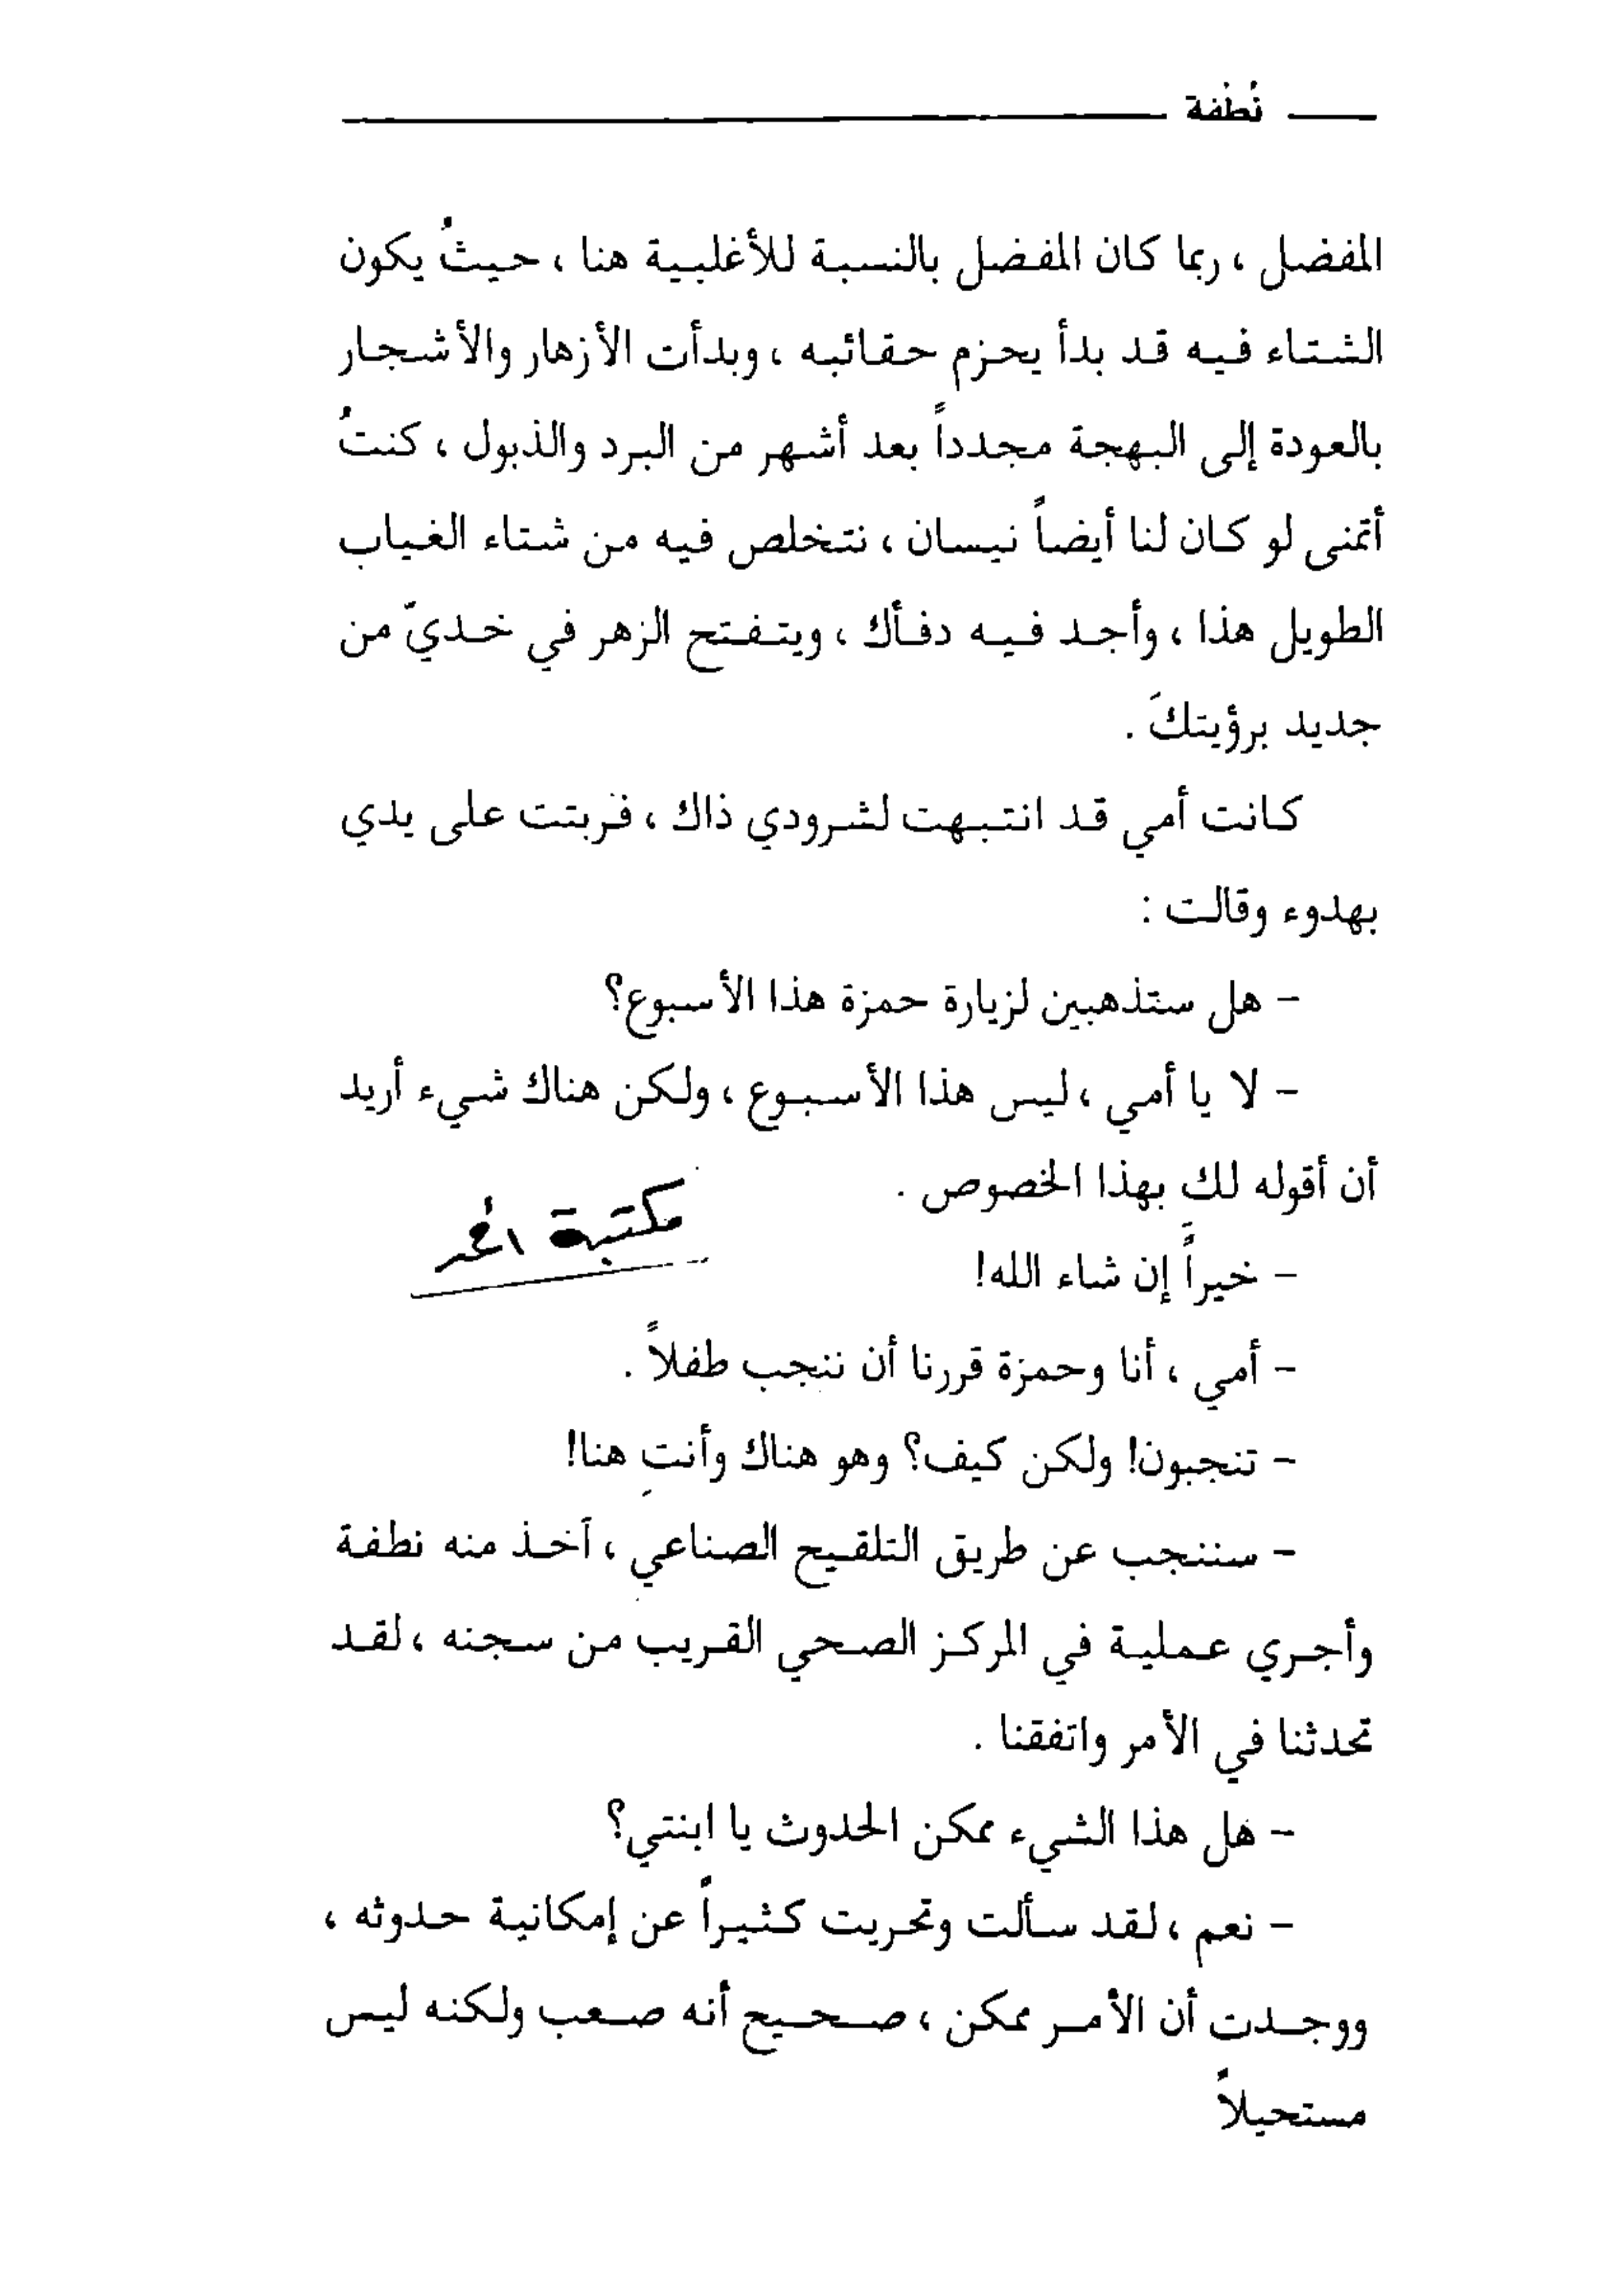 نُطْفة
المفضل ، ربما كان المفضل بالنسبة للأغلبية هنا ، حيثُ يكون
الشتاء فيه قد بدأ يحزم حقائبه ، وبدأت الأزهار والأشجار
بالعودة إلى البهجة مجدداً بعد أشهر من البرد والذبول ، كنتُ
أتمنى لو كان لنا أيضاً نيسان ، نتخلص فيه من شتاء الغياب
الطويل هذا ، وأجد فيه دفأك ، ويتفتح الزهر في خديّ من
جديد برؤيتكَ .
كانت أمي قد انتبهت لشرودي ذاك ، فربتت على يدي
بهدوء وقالت :
- هل ستذهبين لزيارة حمزة هذا الأسبوع؟
- لا يا أمي ، ليس هذا الأسبوع ، ولكن هناك شيء أريد
أن أقوله لك بهذا الخصوص .
مكتبة
- خيراً إن شاء الله!
- أمي ، أنا وحمزة قررنا أن ننجب طفلاً .
- تنجبون! ولكن كيف؟ وهو هناك وأنتِ هنا!
- سننجب عن طريق التلقيح الصناعي ، آخذ منه نطفة
وأجري عملية في المركز الصحي القريب من سجنه ، لقد
تحدثنا في الأمر واتفقنا .
- هل هذا الشيء ممكن الحدوث يا ابنتي؟
- نعم ، لقد سألت وتحريت كثيراً عن إمكانية حدوثه ،
ووجدت أن الأمر ممكن ، صحيح أنه صعب ولكنه ليس
مستحيلاً